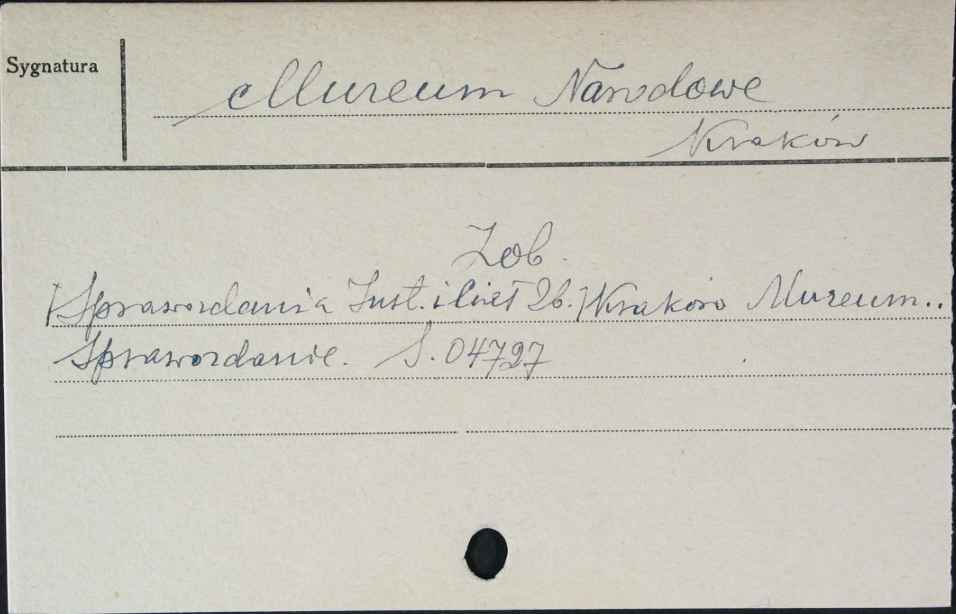 Sygnatura
Muzeum Narodowe
Kraków
Zob.
[Sprawozdania Inst. i Lict Zb.] Kraków Muzeum..
Sprawozdanie. S. 04727